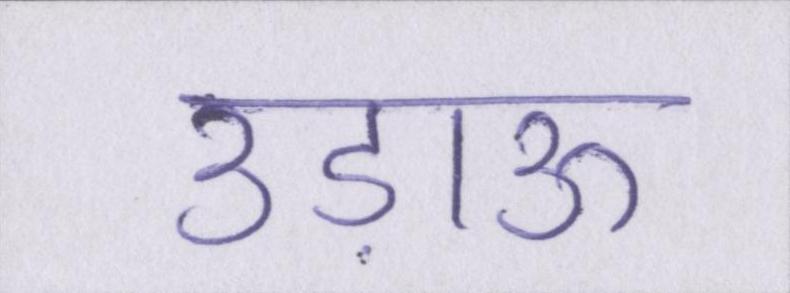 उड़ाऊ